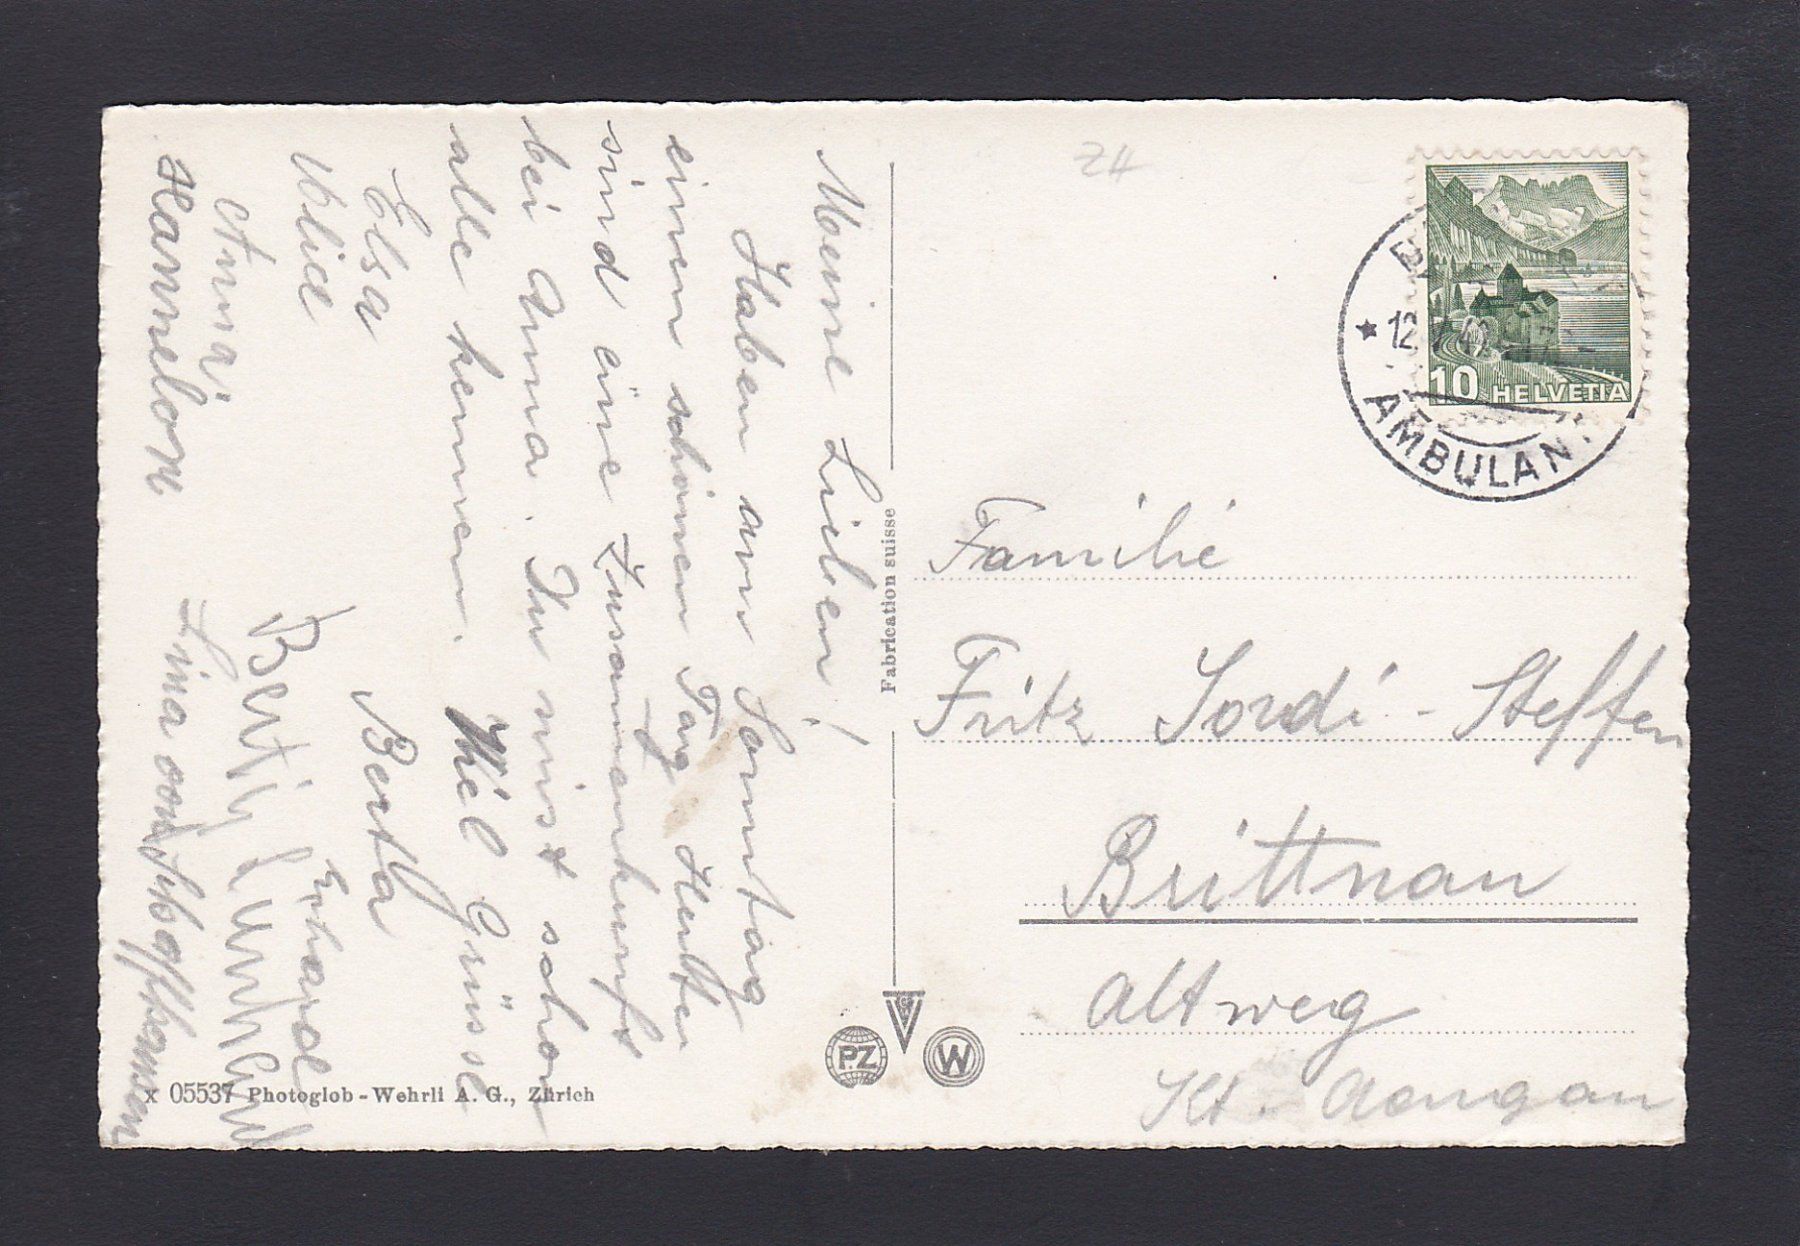 Meine Lieben!
Haben am Sonntag
einen schönen Tag. Hatten
sind eine Zusammenkunft
bei Anna. Du wirst schon
alle kennen. Viel Grüsse
Elsa Berta
Alice Erhard
Anna
Berti
Hannelori
Lina
Fabrication suisse
Z4
10 HELVETIA
12.
AMBULAN
Familie
Fritz Sordi-Steffen
Brittnau
Altweg
Kt. Aargau
PZ
W
x 05537 Photoglob-Wehrli A. G., Zürich